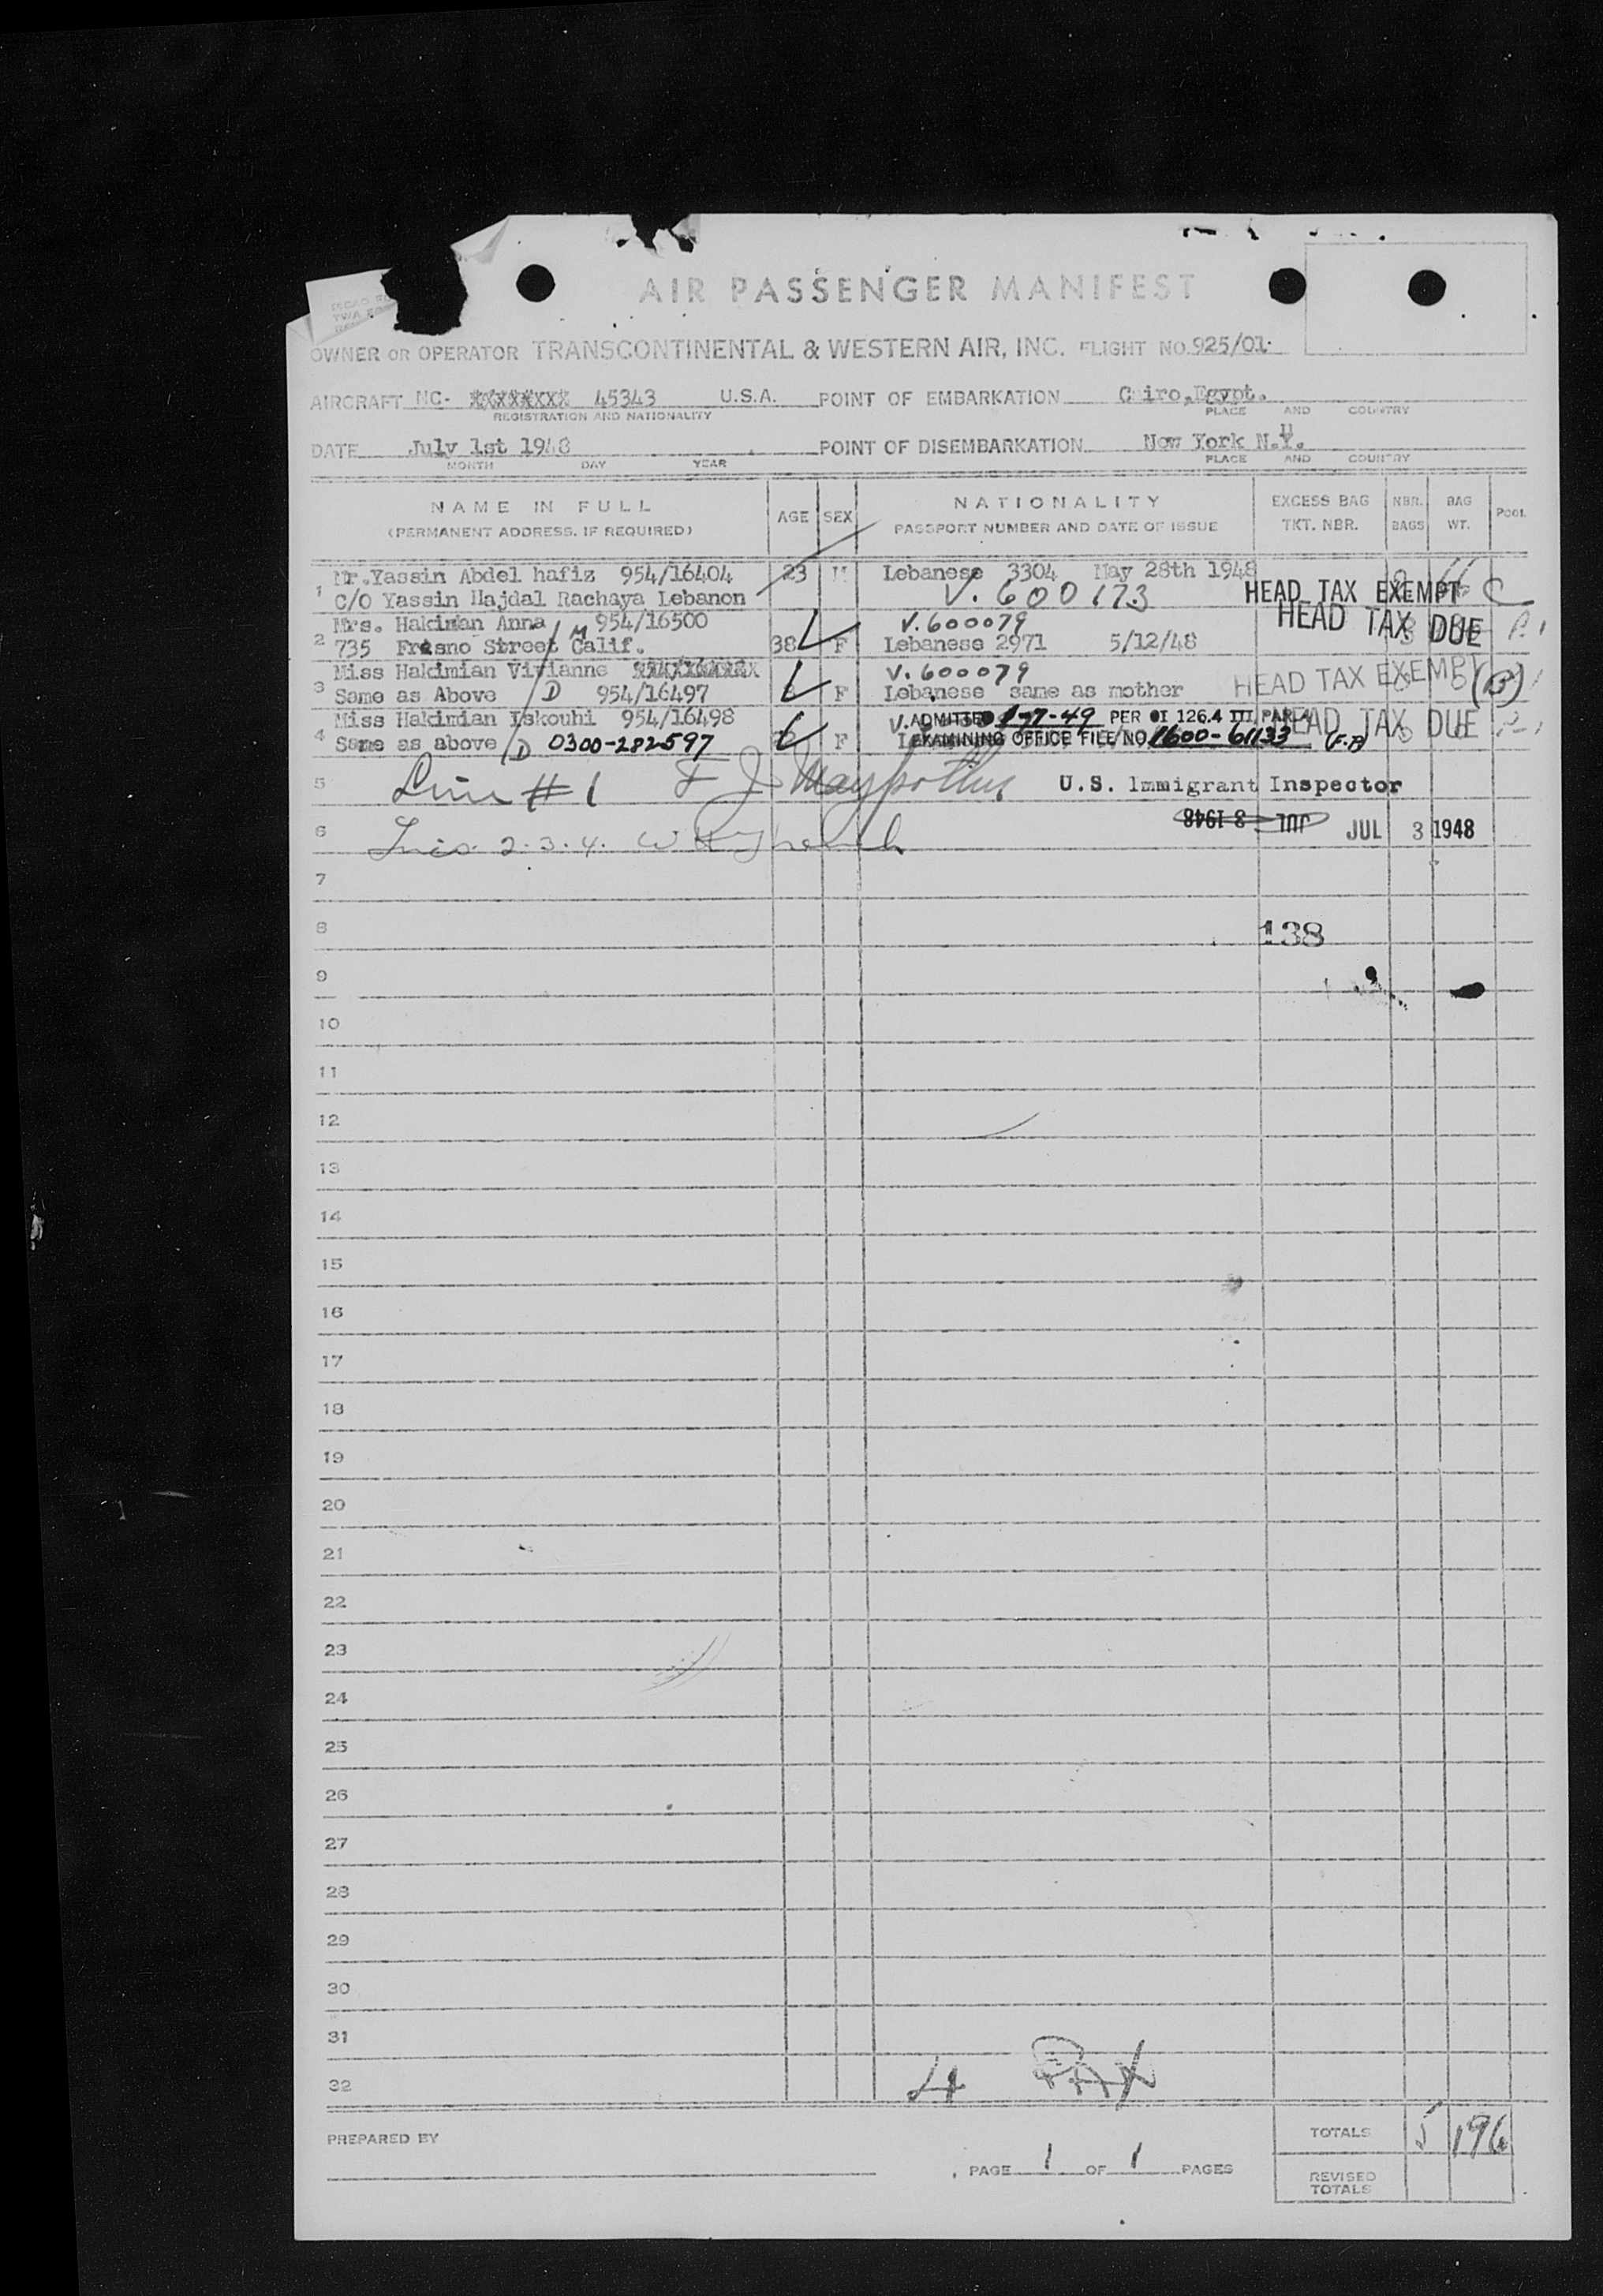 AIR PASSENGER MANIFEST
OWNER OR OPERATOR TRANSCONTINENTAL & WESTERN AIR, INC. FLIGHT NO. 925/01
AIRCRAFT NC- 45343 U.S.A. POINT OF EMBARKATION Cairo, Egypt.
REGISTRATION AND NATIONALITY PLACE AND COUNTRY
DATE July 1st 1948 POINT OF DISEMBARKATION New York N.Y.
MONTH DAY YEAR PLACE AND COUNTRY
NAME IN FULL AGE SEX NATIONALITY EXCESS BAG NBR. BAG POOL
(PERMANENT ADDRESS, IF REQUIRED) PASSPORT NUMBER AND DATE OF ISSUE TKT. NBR. BAGS WT.
1 Mr.Yassin Abdel hafiz 954/16404 23 M Lebanese 3304 May 28th 1948
C/O Yassin Majdal Rachaya Lebanon V. 600173 HEAD TAX EXEMPT C
Mrs. Hakiman Anna 954/16500 V. 600079 HEAD TAX DUE
2 735 Fresno Street Calif. M 38 F Lebanese 2971 5/12/48
Miss Hakimian Vivianne V. 600079
3 Same as Above D 954/16497 F Lebanese same as mother HEAD TAX EXEMPT (B)
Miss Hakimian Iskouhi 954/16498 ADMITTED 1-7-49 PER OI 126.4 III, PAR. HEAD TAX DUE
4 Same as above D 0300-282597 F EXAMINING OFFICE FILE NO. 1600-61133
5 Line #1 F J U.S. Immigrant Inspector
JUL 3 1948
6 2.3.4. JUL 3 1948
7
8 138
9
10
11
12
13
14
15
16
17
18
19
20
21
22
23
24
25
26
27
28
29
30
31
32 4 PAX
PREPARED BY TOTALS 5 196
PAGE 1 OF 1 PAGES
REVISED
TOTALS